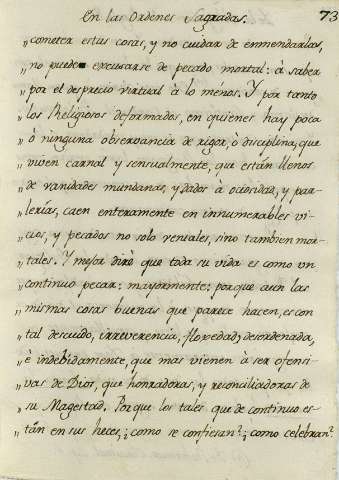 En las Ordenes Sagradas. 73
„cometer estas cosas, y no cuidar de emmendarlas,
„no puede excusarse de pecado mortal: à saber
„por el desprecio virtual à lo menos. Y por tanto
„los Religiosos deformados, en quienes hay poca
„ò ninguna observancia de rigor, ò disciplina, que
„viven carnal y sensualmente, que están llenos
„de vanidades mundanas, y dados à ociosidad, y par-
„lerías, caen enteramente en innumerables vi-
„cios, y pecados no solo veniales, sino tambien mor-
„tales. Y mejor diré que toda su vida es como un
„continuo pecar: mayormente: porque aun las
„mismas cosas buenas que parece hacen, es con
„tal descuido, irreverencia, flojedad, desordenada,
„è indebidamente, que mas vienen à ser ofensi-
„vas de Dios, que honradoras, y reconciliadoras de
„su Magestad. Porque los tales que de continuo es-
„tán en sus heces, ¿como se confiesan? ¿como celebran?